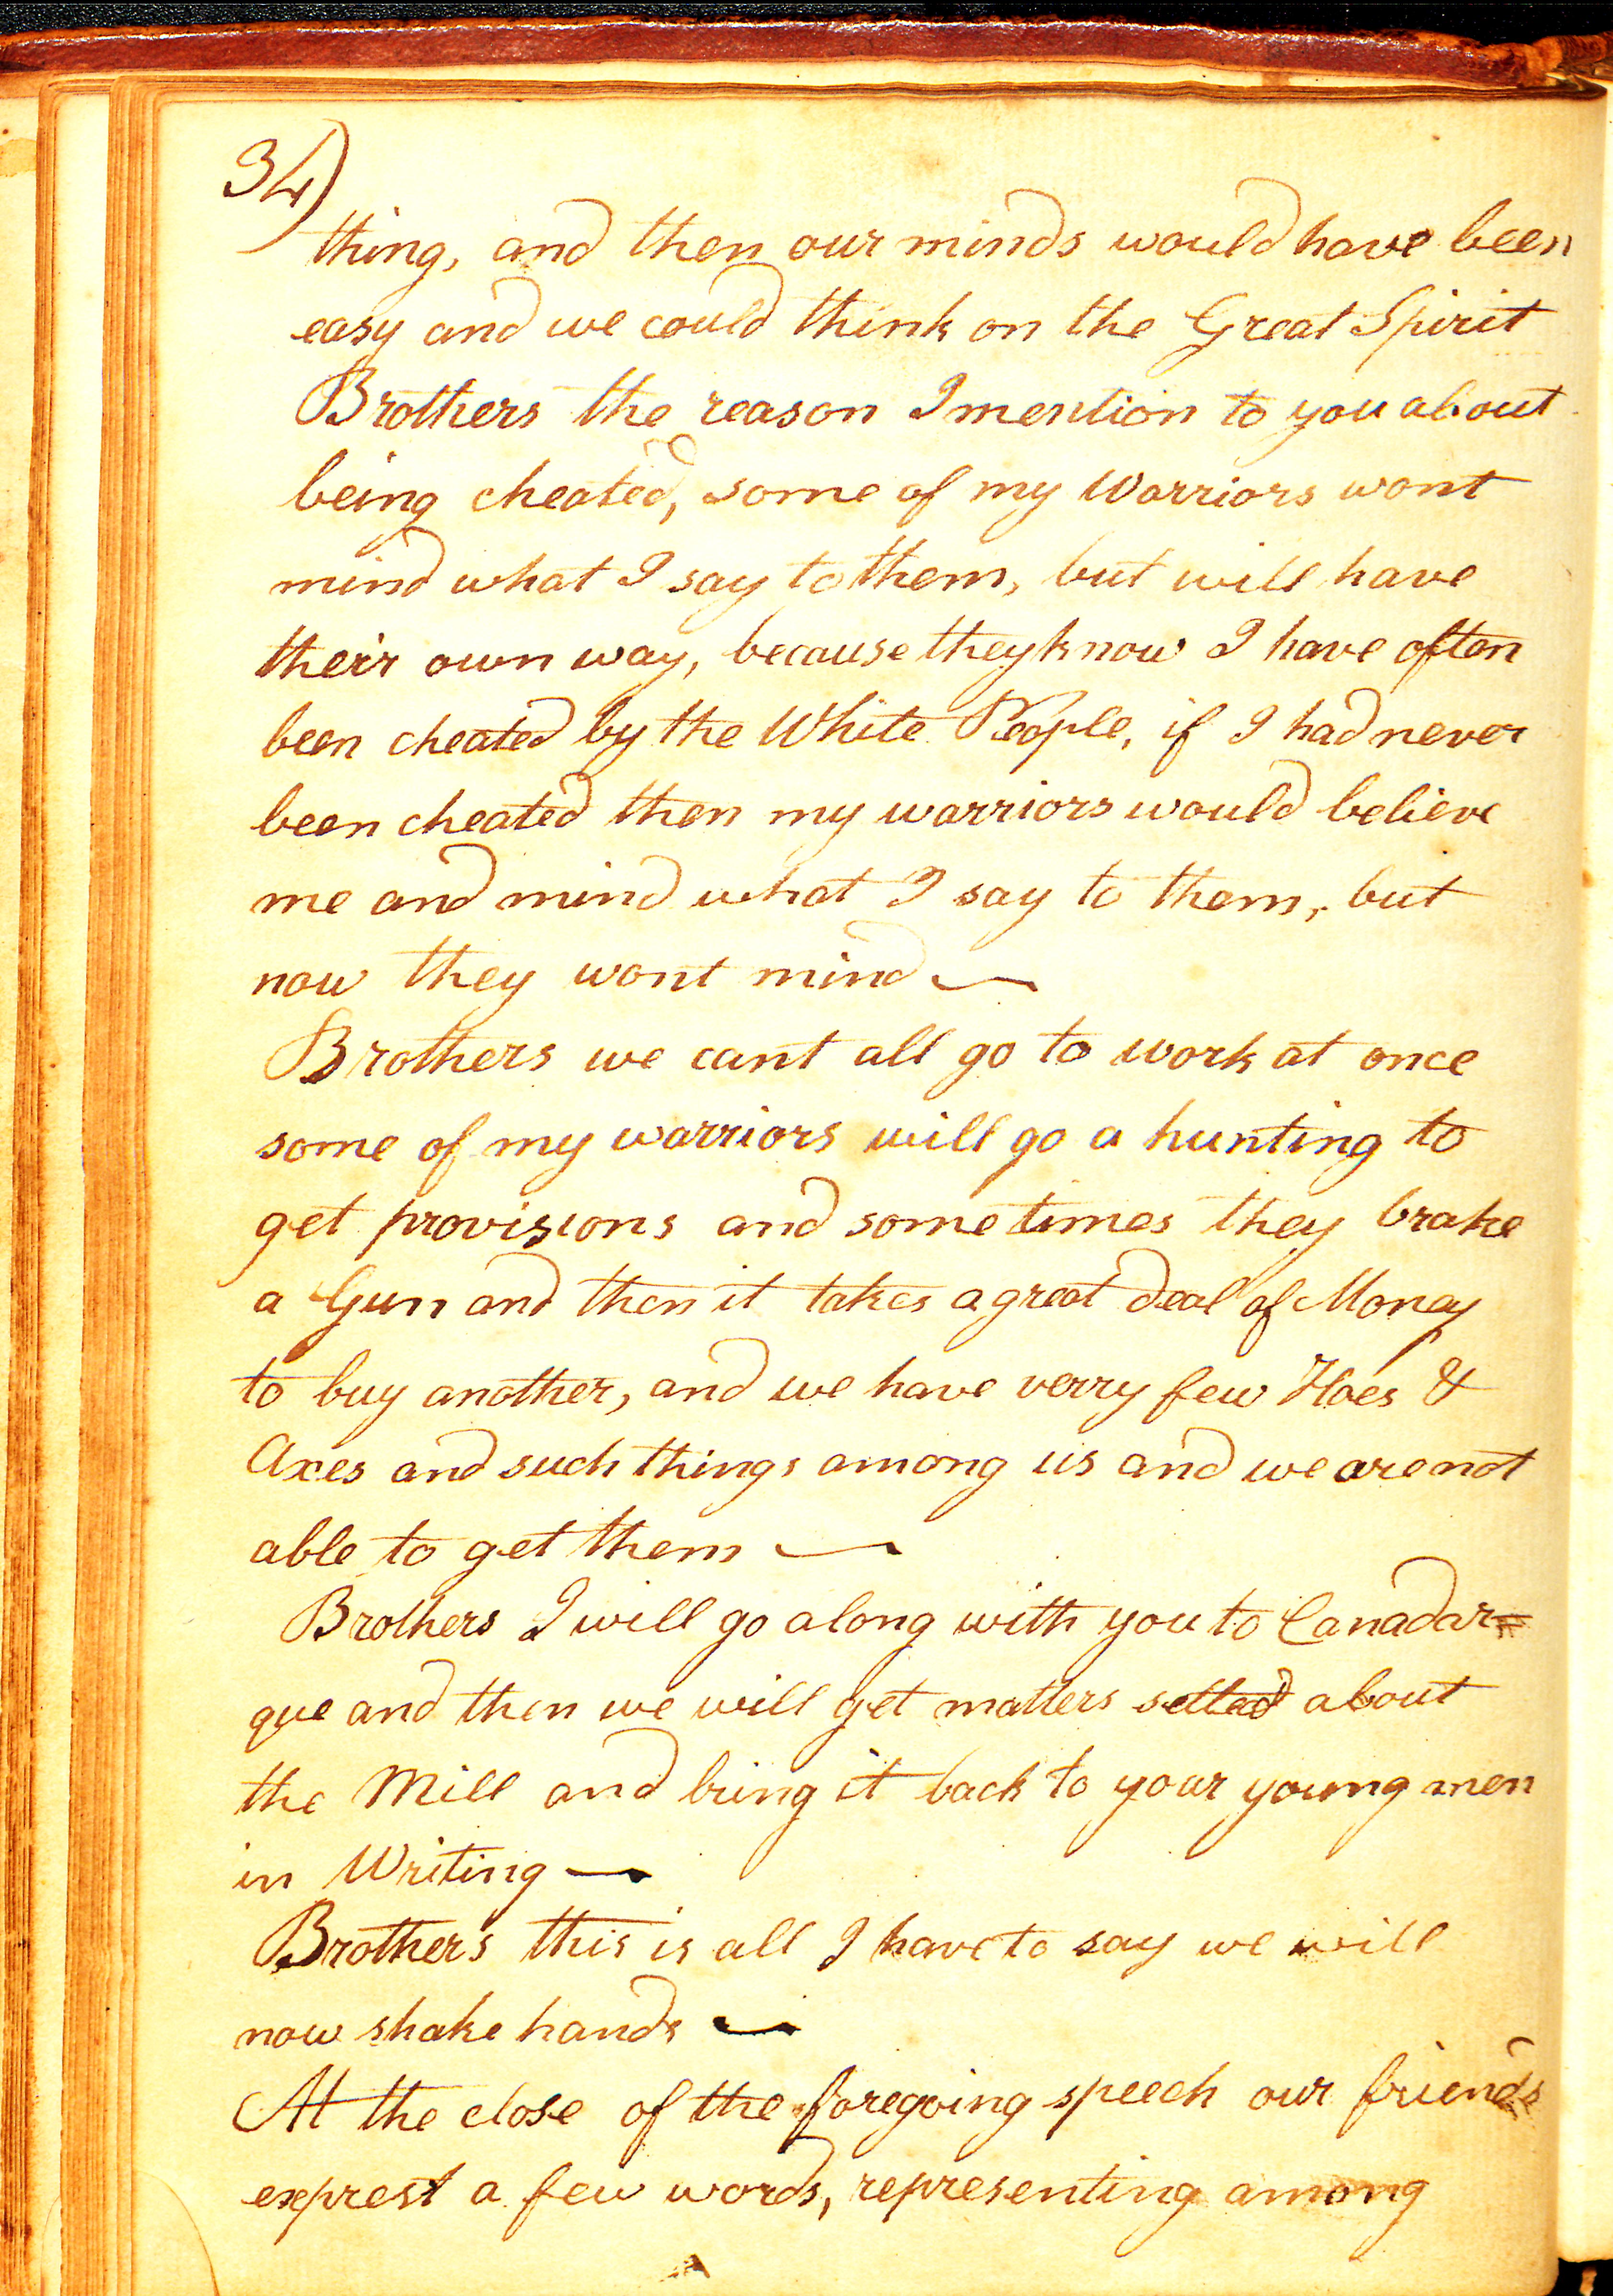 34)
thing, and then our minds would have been
easy and we could think on the Great Spirit
Brothers the reason I mention to you about
being cheated, some of my Warriors wont
mind what I say to them, but will have
their own way, because they know I have often
been cheated by the White People, if I had never
been cheated then my warriors would believe
me and mind what I say to them, but
now they wont mind —
Brothers we cant all go to work at once
some of my warriors will go a hunting to
get provisions and some times they brake
a Gun and then it takes a great deal of Money
to buy another, and we have verry few Hoes &
Axes and such things among us and we are not
able to get them —
Brothers I will go along with you to Canadar=
que and then we will get matters setted about
the Mill and bring it back to your young men
in Writing —
Brothers this is all I have to say we will
now shake hands —
At the close of the foregoing speech our friends
exprest a few words, representing among